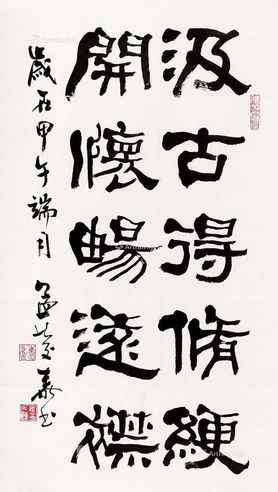 汲古得脩綆
開懷暢遠襟
歲在甲午端月 孟慶泰書